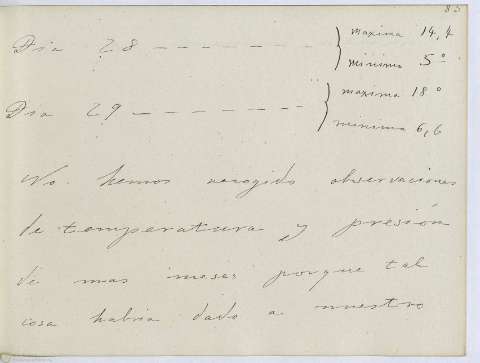 83
Dia 28 — — — — — — — } maxima 14,4
minima 5°
Dia 29 — — — — — — — } maxima 18°
minima 6,6
No hemos recogido observaciones
de temperatura y presión
de mas meses porque tal
cosa habria dado a nuestro